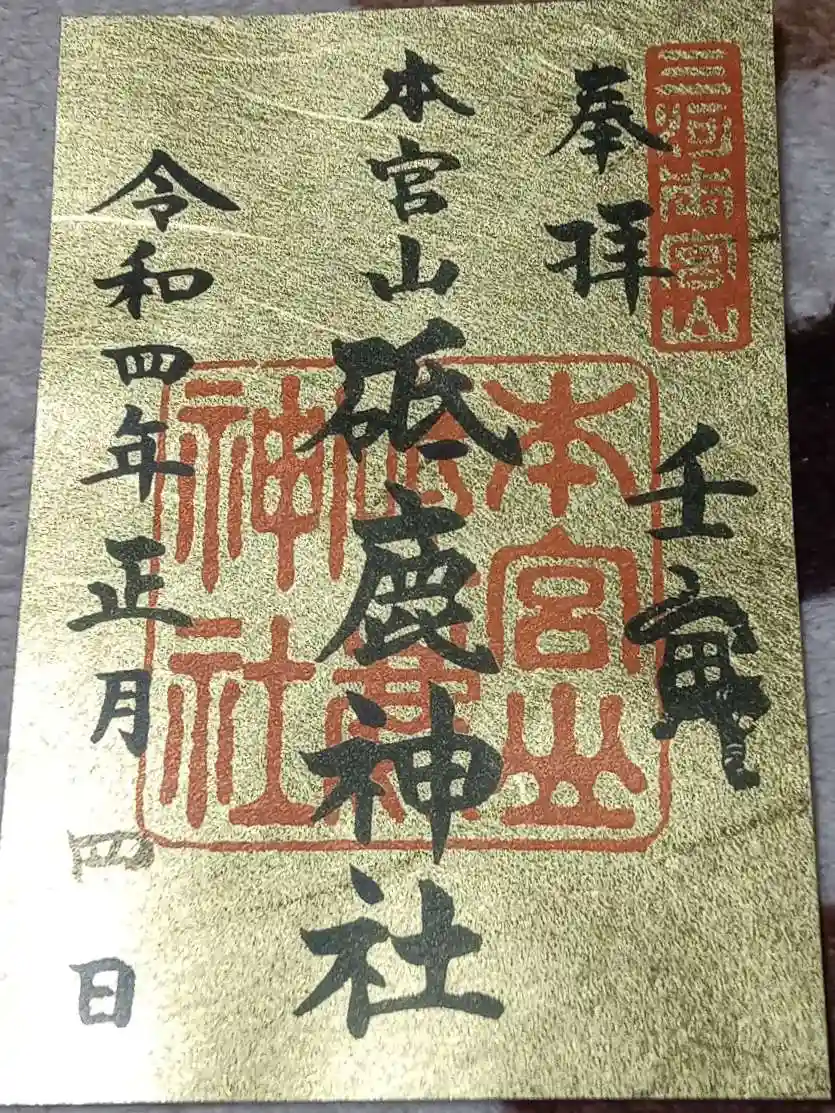 三河本宮山
奉拝
壬寅
本宮山
砥鹿神社
本宮山砥鹿神社
令和四年正月四日